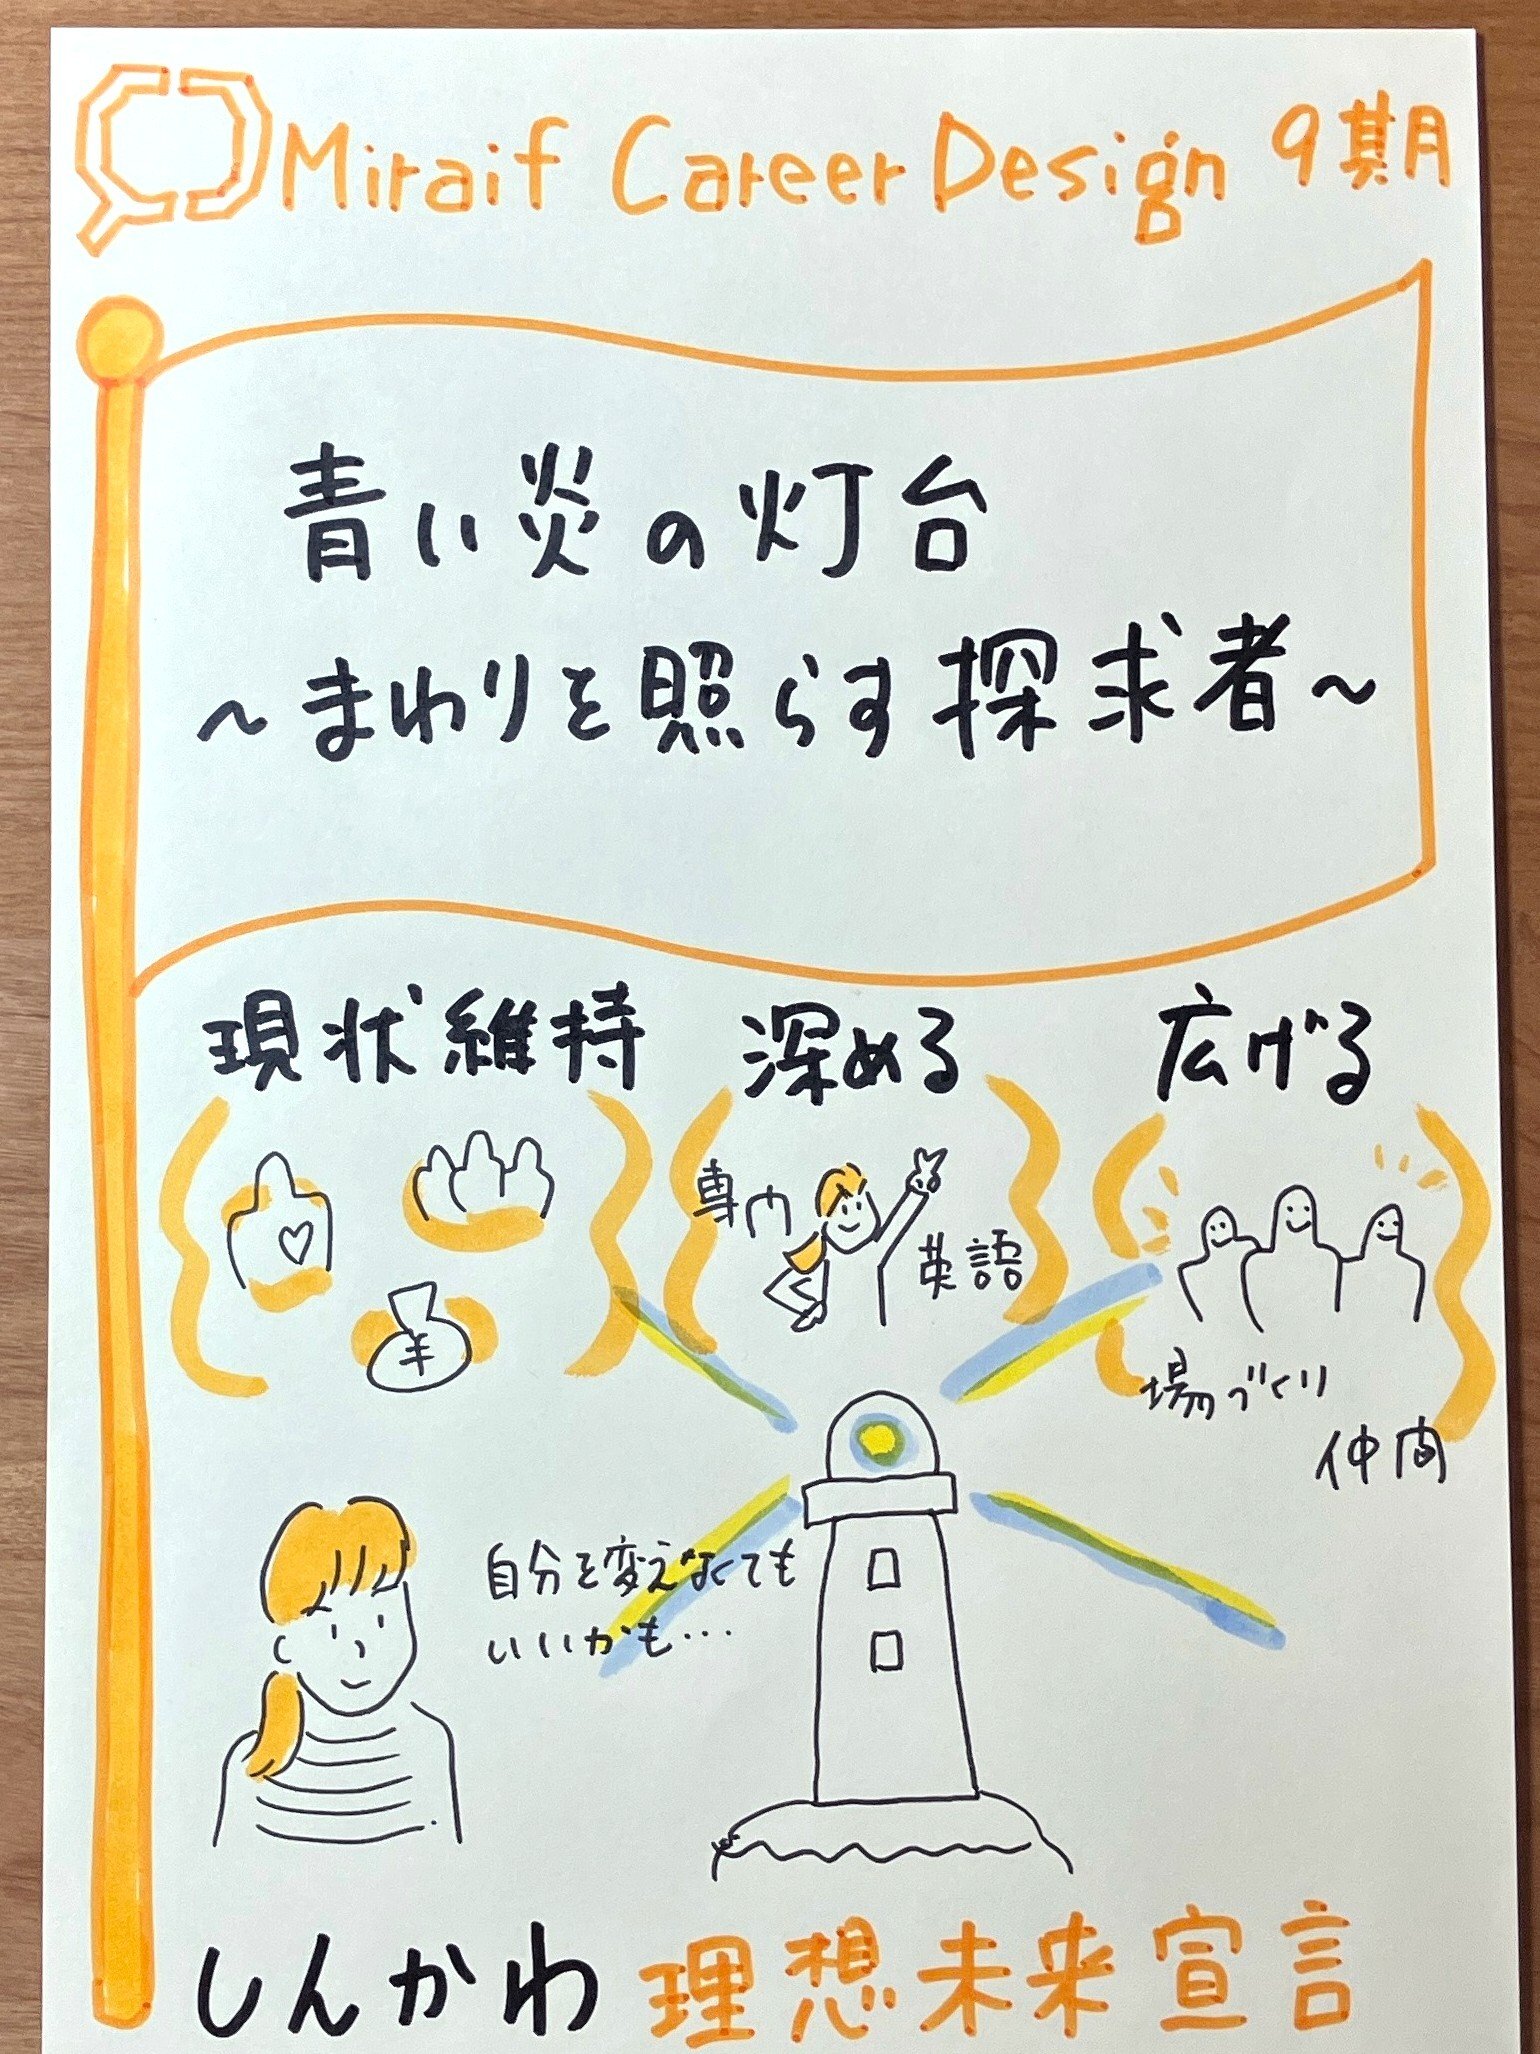 Miraif Career Design 9期
青い炎の灯台
～まわりを照らす探求者～
現状維持
深める
広げる
専門
英語
¥
場づくり
仲間
自分を変えなくても
いいかも…
しんかわ 理想未来宣言